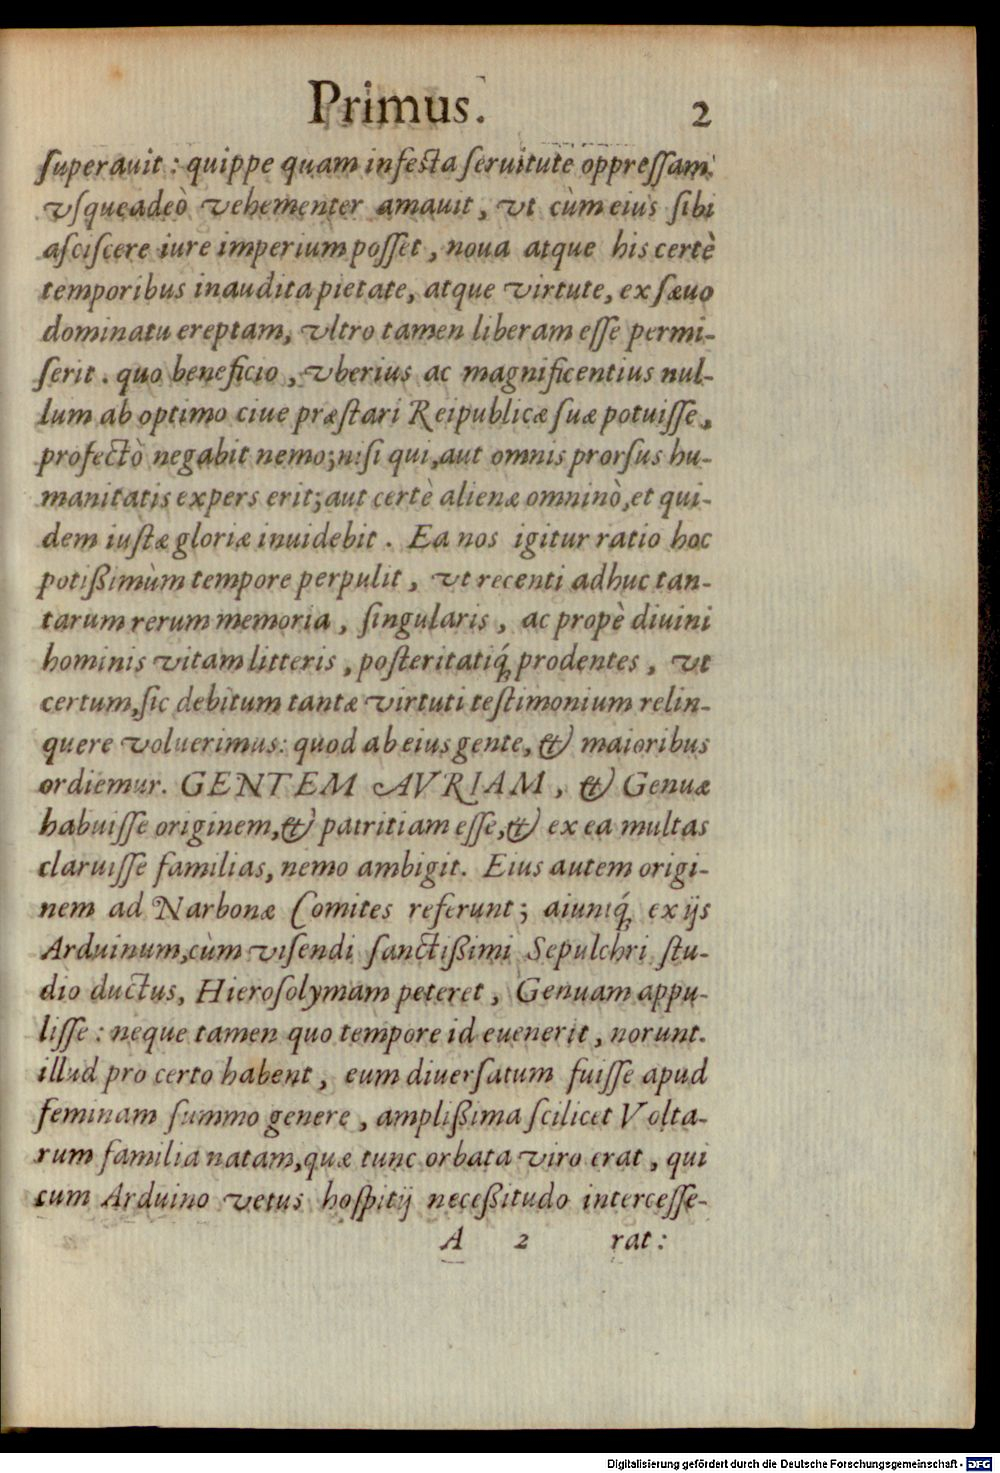 Primus. 2
ſuperauit: quippe quam infeſta ſeruitute oppreſſam
vſqueadeò vehementer amauit, vt cùm eius ſibi
aſciſcere iure imperium poſſet, noua atque his certè
temporibus inaudita pietate, atque virtute, ex ſæuo
dominatu ereptam, vltro tamen liberam eſſe permi-
ſerit. quo beneficio, vberius ac magnificentius nul-
lum ab optimo ciue præſtari Reipublicæ ſuæ potuiſſe,
profectò negabit nemo; niſi qui, aut omnis prorſus hu-
manitatis expers erit; aut certè alienæ omninò, et qui-
dem iuſtæ gloriæ inuidebit. Ea nos igitur ratio hoc
potißimùm tempore perpulit, vt recenti adhuc tan-
tarum rerum memoria, ſingularis, ac propè diuini
hominis vitam litteris, poſteritatiq́; prodentes, vt
certum, ſic debitum tantæ virtuti teſtimonium relin-
quere voluerimus: quod ab eius gente, & maioribus
ordiemur. GENTEM AVRIAM, & Genuæ
habuiſſe originem, & patritiam eſſe, & ex ea multas
claruiſſe familias, nemo ambigit. Eius autem origi-
nem ad Narbonæ Comites referunt; aiuntq́; ex ijs
Arduinum, cùm viſendi ſanctißimi Sepulchri ſtu-
dio ductus, Hieroſolymam peteret, Genuam appu-
liſſe: neque tamen quo tempore id euenerit, norunt.
illud pro certo habent, eum diuerſatum fuiſſe apud
feminam ſummo genere, amplißima ſcilicet Volta-
rum familia natam, quæ tunc orbata viro erat, qui
cum Arduino vetus hoſpitij neceßitudo interceſſe-
A 2 rat:
Digitalisierung gefördert durch die Deutsche Forschungsgemeinschaft - DFG